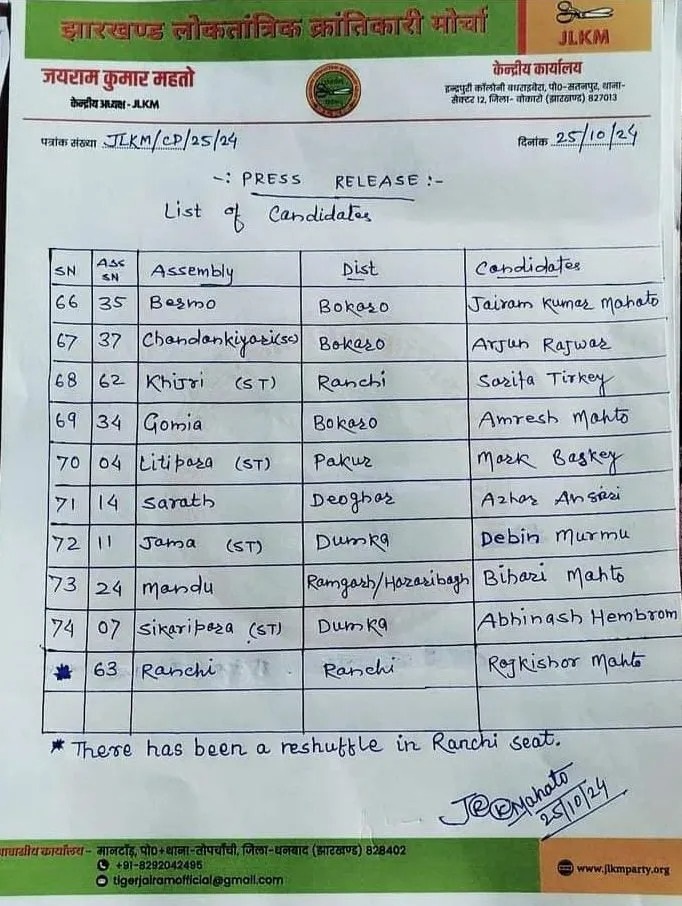 झारखण्ड लोकतांत्रिक क्रांतिकारी मोर्चा
JLKM
जयराम कुमार महतो
केन्द्रीय अध्यक्ष - JLKM
केन्द्रीय कार्यालय
इन्द्रपुरी कॉलोनी बाधराइबेरा, पो0-सतनपुर, थाना-
सेक्टर 12, जिला- बोकारो (झारखण्ड) 827013
पत्रांक संख्या JLKM/CP/25/24
दिनांक 25/10/24
-: PRESS RELEASE :-
List of Candidates
SN Ass SN Assembly Dist Candidates
66 35 Bermo Bokaro Jairam Kumar Mahato
67 37 Chandankiyari(sc) Bokaro Arjun Rajwar
68 62 Khijri (ST) Ranchi Sarita Tirkey
69 34 Gomia Bokaro Amresh Mahto
70 04 Litipara (ST) Pakur Mark Baskey
71 14 Sarath Deoghar Azhar Ansari
72 11 Jama (ST) Dumka Debin Murmu
73 24 Mandu Ramgarh/Hazaribagh Bihari Mahto
74 07 Sikaripara (ST) Dumka Abhinash Hembrom
* 63 Ranchi Ranchi Rajkishor Mahto
* There has been a reshuffle in Ranchi seat.
Mahato
25/10/24
कार्यालय - मानटाँड़, पो0+थाना-तोपचाँची, जिला-धनबाद (झारखण्ड) 828402
+91-8292042495
tigerjairamofficial@gmail.com
www.jlkmparty.org